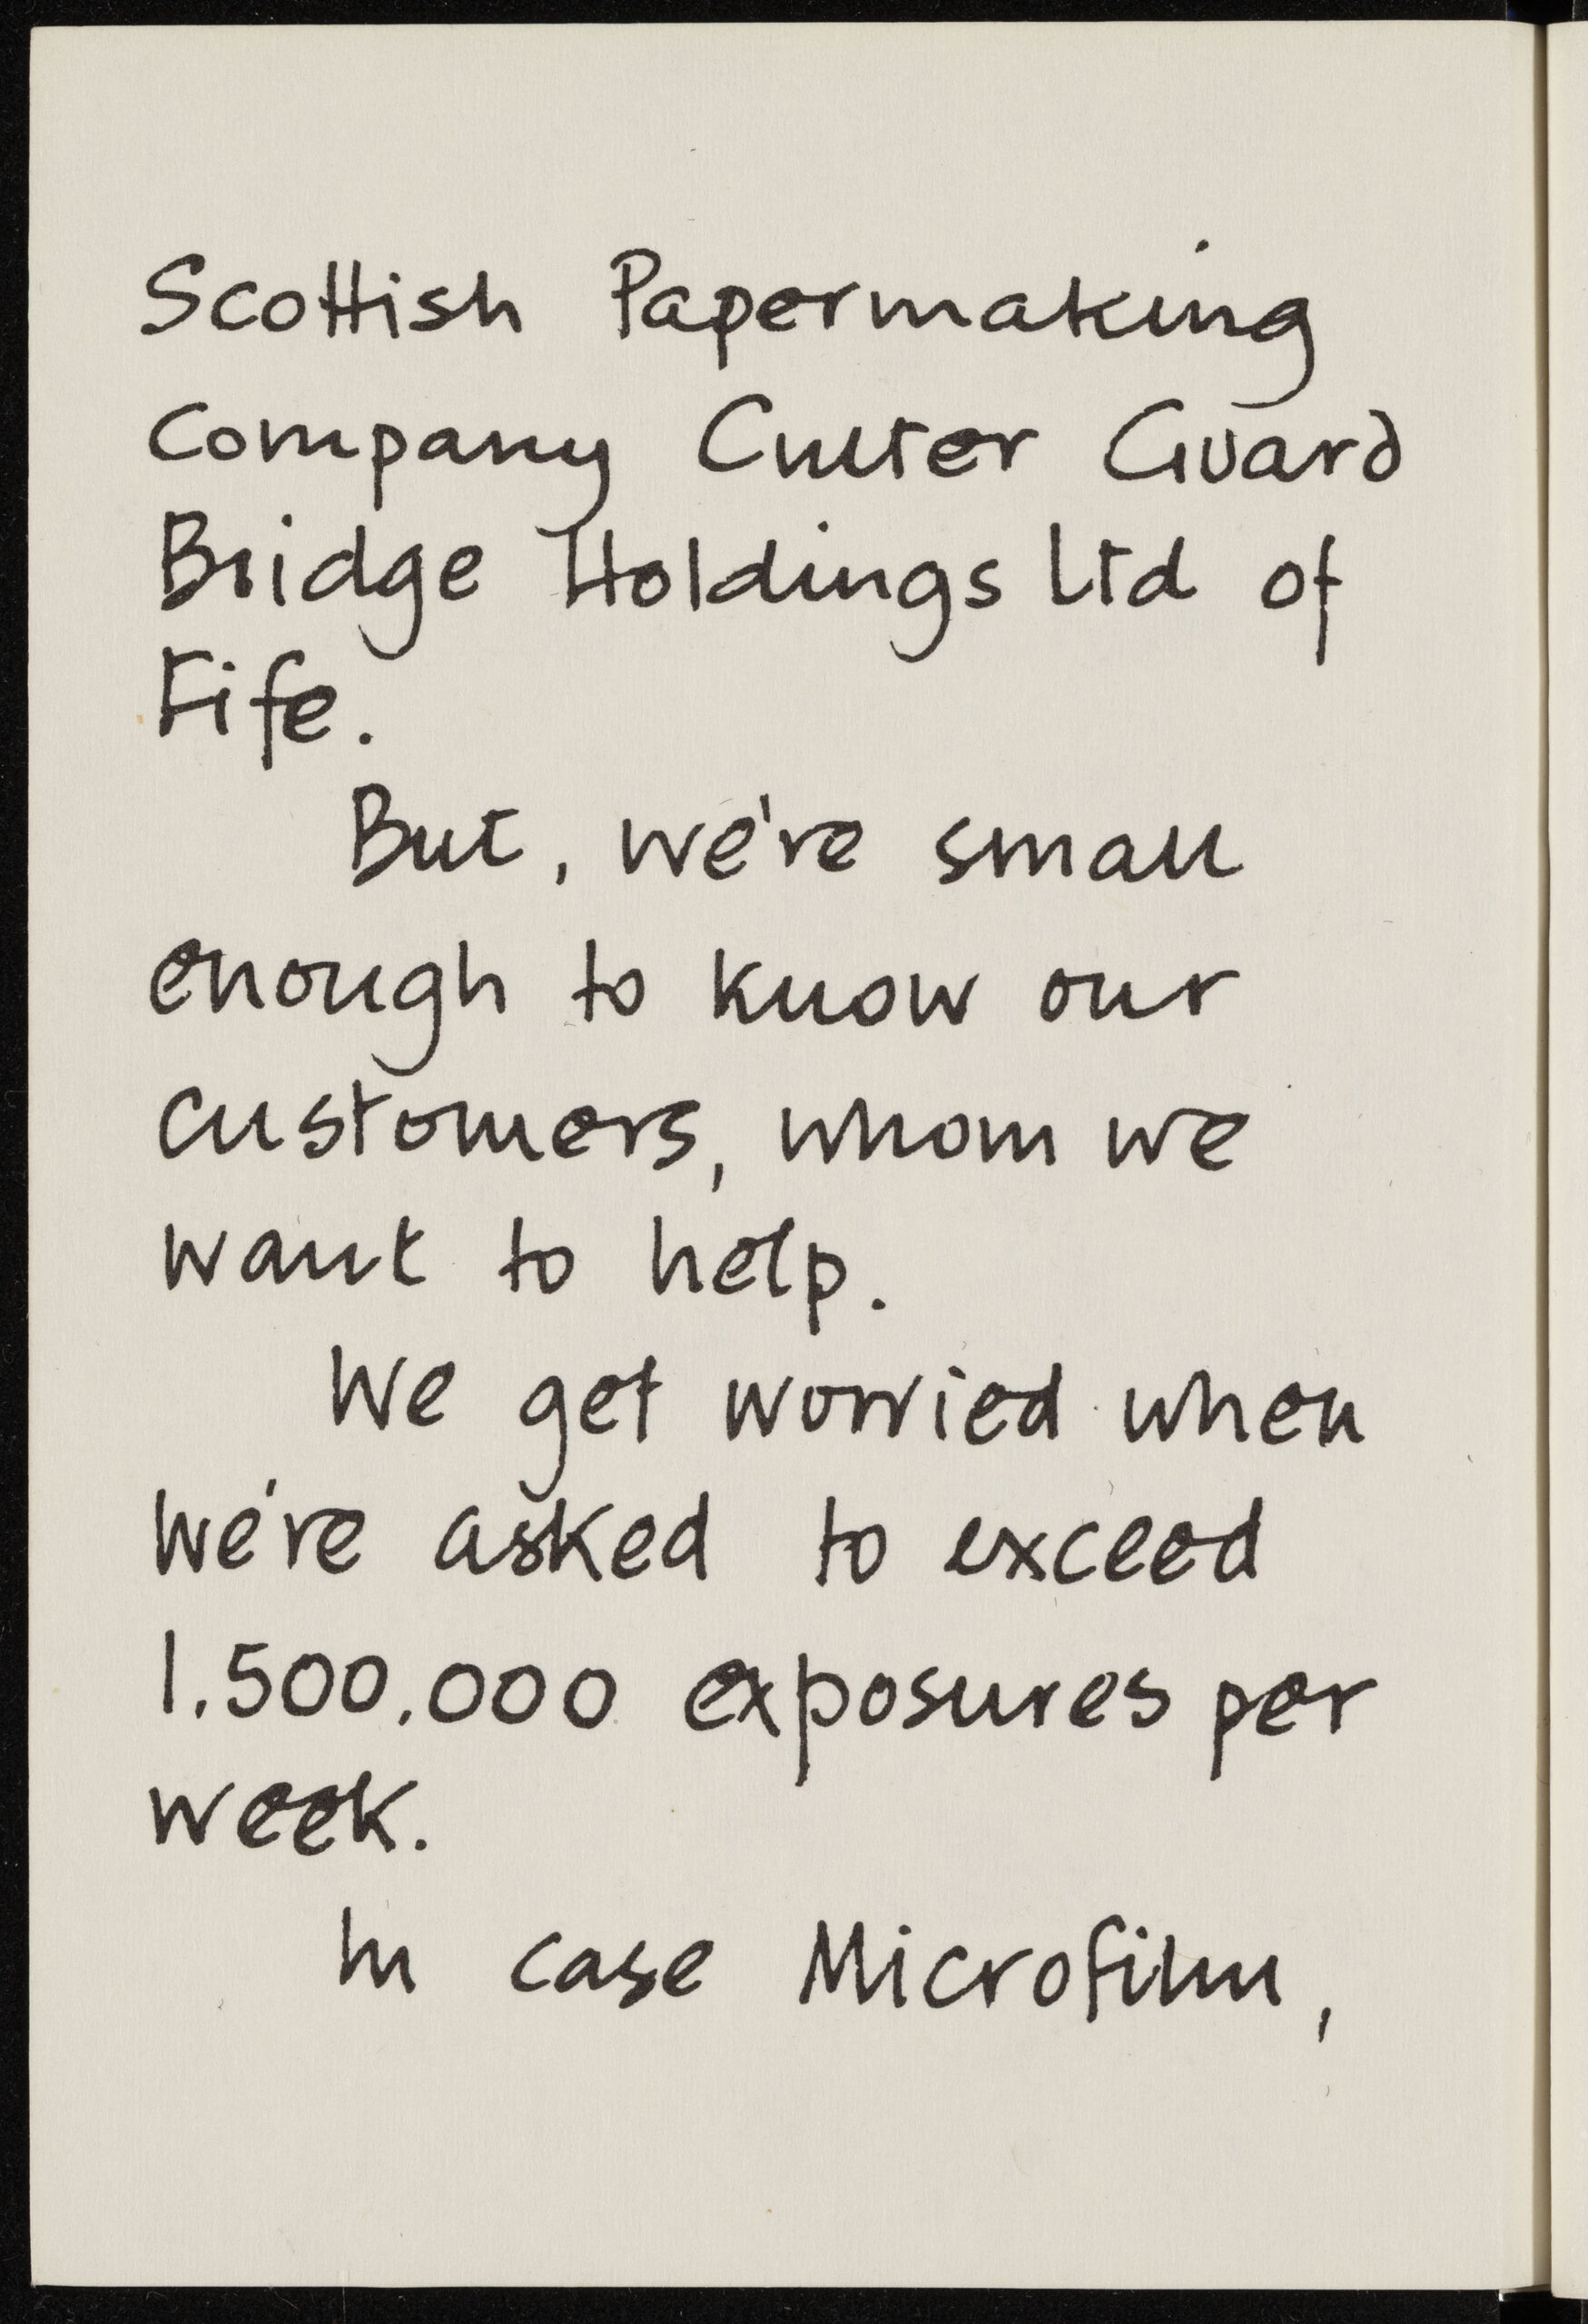 Scottish Papermaking
Company Culter Guard
Bridge Holdings Ltd of
Fife.
But, we're small
enough to know our
customers, whom we
want to help.
We get worried when
we're asked to exceed
1,500,000 exposures per
week.
In case Microfilm,